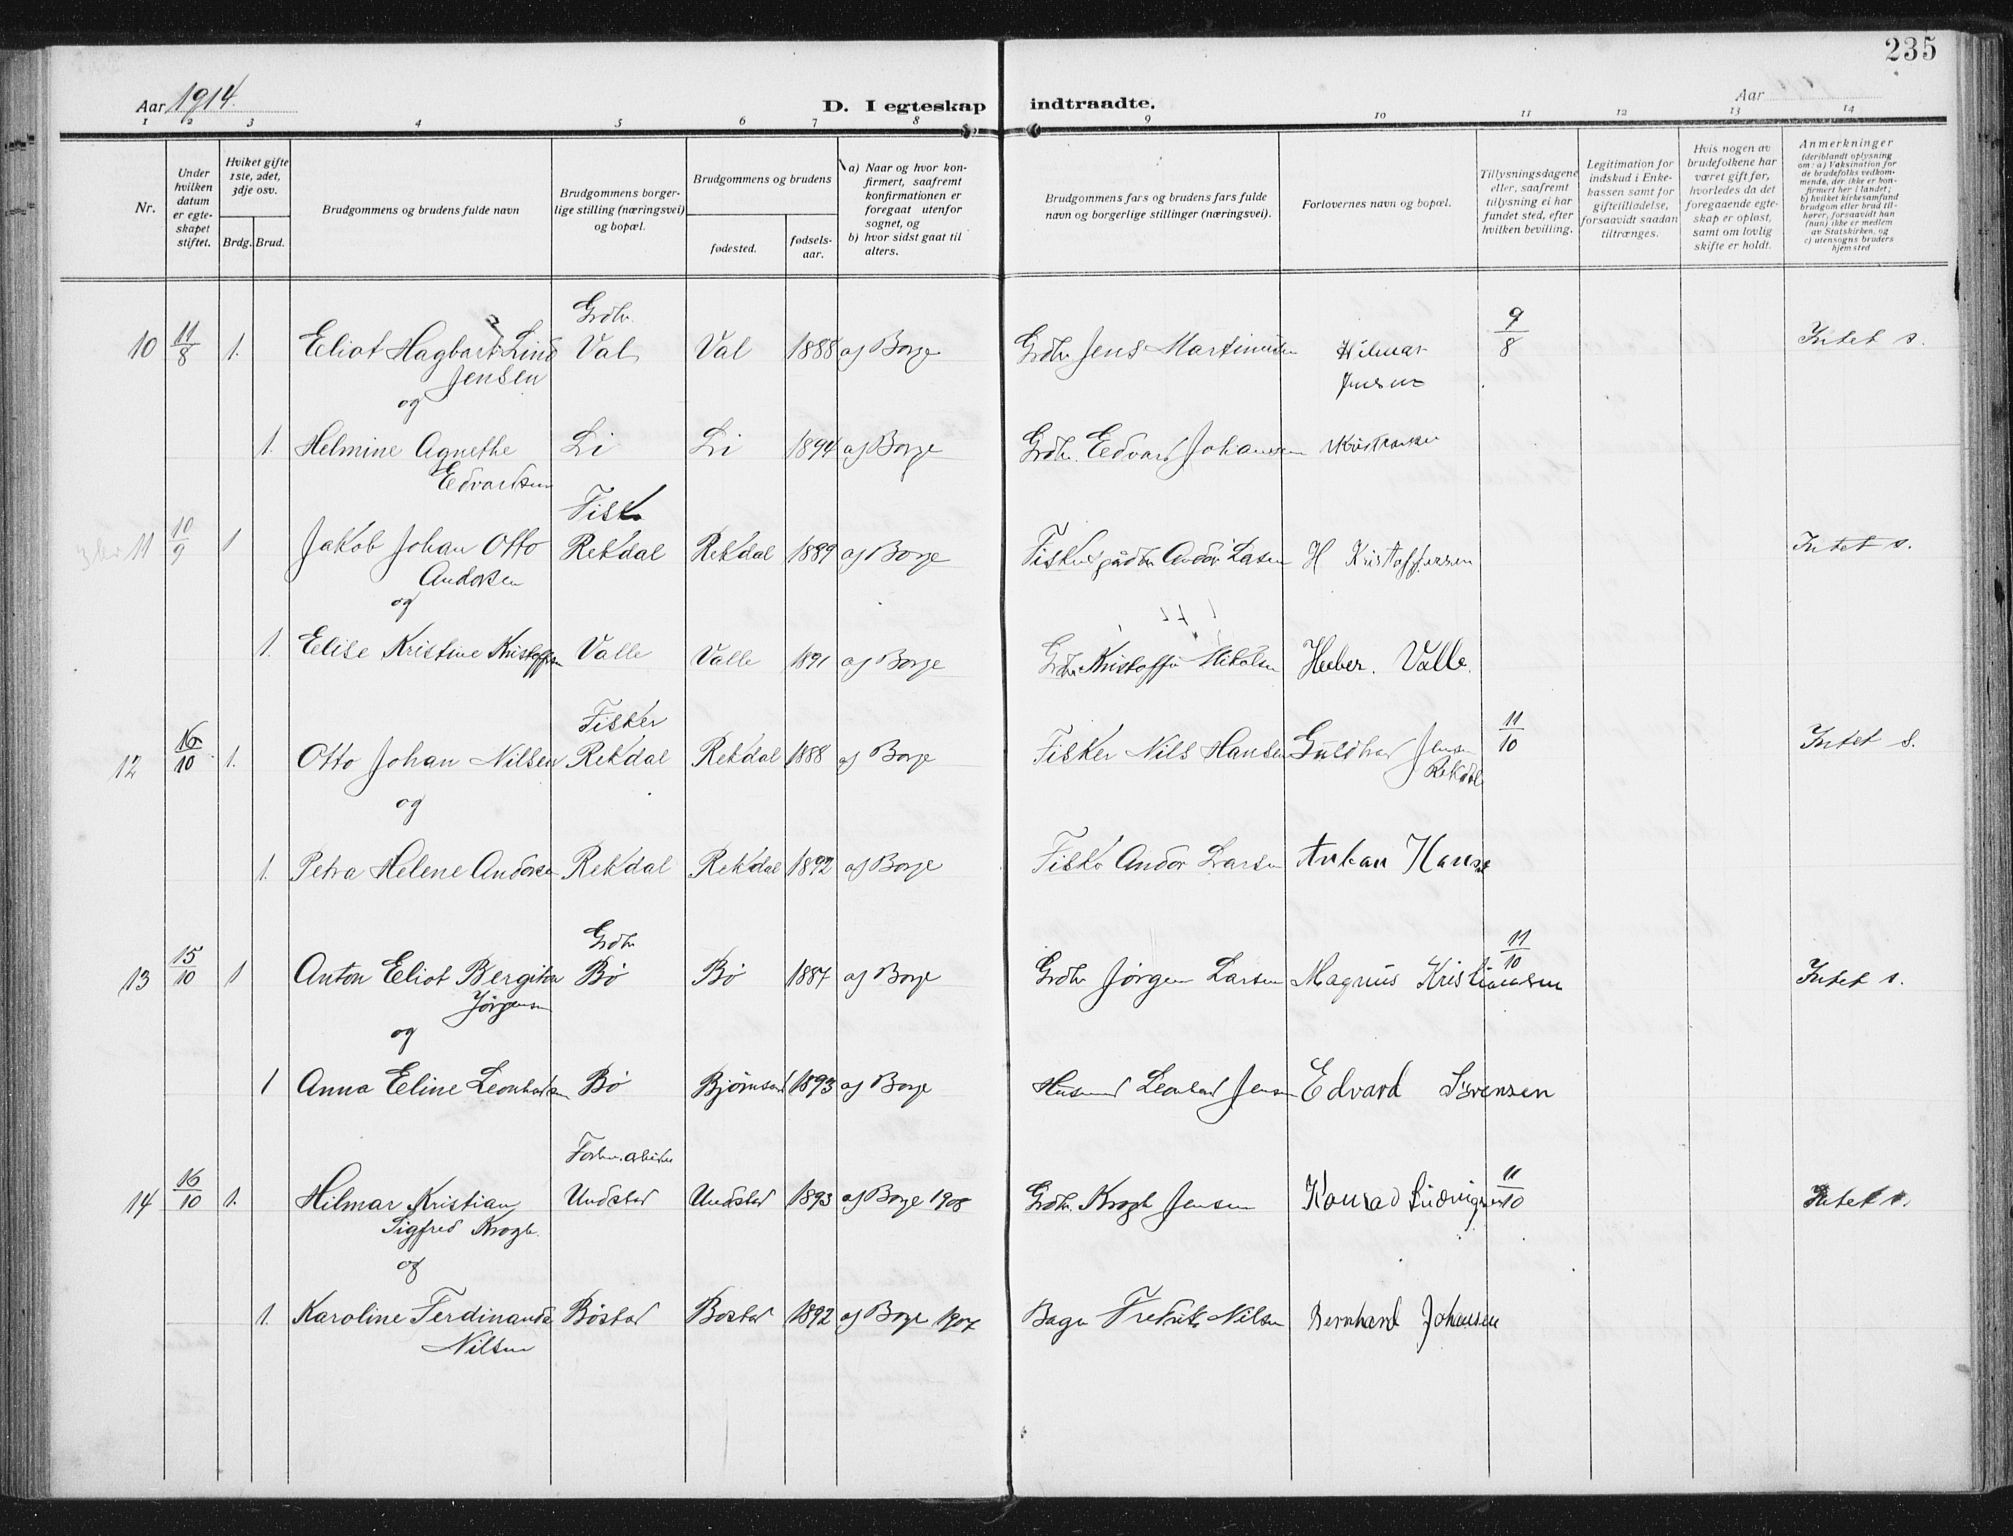 235
Aar 1914.
D. I egteskap indtraadte.
Aar
1 2 3 4 5 6 7 8 9 10 11 12 13 14
Nr.
Under hvilken datum er egteskapet stiftet.
Hviket gifte 1ste, 2det, 3dje osv.
Brdg. Brud.
Brudgommens og brudens fulde navn
Brudgommens borgerlige stilling (næringsvei) og bopæl.
Brudgommens og brudens
fødested.
fødselsaar.
a) Naar og hvor konfirmert, saafremt konfirmationen er foregaat utenfor sognet, og
b) hvor sidst gaat til alters.
Brudgommens fars og brudens fars fulde navn og borgerlige stillinger (næringsvei).
Forlovernes navn og bopæl.
Tillysningsdagene eller, saafremt tillysning ei har fundet sted, efter hvilken bevilling.
Legitimation for indskud i Enkekassen samt for giftetilladelse, forsaavidt saadan tiltrænges.
Hvis nogen av brudefolkene har været gift før, hvorledes da det foregaaende egteskap er opløst, samt om lovlig skifte er holdt.
Anmerkninger
(deriblandt oplysning om: a) Vaksination for de brudefolks vedkommende, der ikke er konfirmert her i landet; b) hvilket kirkesamfund brudgom eller brud tilhører, forsaavidt han (hun) ikke er medlem av Statskirken, og c) utensogns bruders hjemsted
Grdbr. 9
10 11/8 1. Eliot Hagbart Lind Val Val 1888 af Borge Grdbr Jens Martinussen Hilmar 8 Intet s.
Jensen Jensen
og
1. Helmine Agnethe Li Li 1894 af Borge Grdbr. Edvard Johansen
Edvardsen
Fisker
11 10/9 1 Jakob Johan Otto Rekdal Rekdal 1889 af Borge Fisker gårdbr Andor Larsen H Kristoffersen Intet s.
Andorsen
og
1. Elise Kristine Kristoffersen Valle Valle 1891 af Borge Grdbr Kristoffer Nikolsen Heber. Valle.
Fisker 11
12 16/10 1. Otto Johan Nilsen Rekdal Rekdal 1888 af Borge Fisker Nils Hansen Guldbrad Jensen 10 Intet s.
Rekdal
og
1. Petra Helene Andorsen Rekdal Rekdal 1892 af Borge Fisker Andor Larsen Anton Hansen
Grdbr 11
13 15/10 1 Anton Eliot Bergiton Bø Bø 1887 af Borge Grdbr Jørgen Larsen Magnus Kristiansen 10 Intet s.
Jørgensen
og
1 Anna Eline Leonhardsen Bø Bjørnsand 1893 af Borge Husmand Leonhard Jensen Edvard Sørensen
14 16/10 1. Hilmar Kristian Undstad Undstad 1893 af Borge 1908 Grdbr. Krogh Jensen Konrad Ludvigsen 11/10 Intet s.
Sigfred Krogh.
og
1. Karoline Ferdinanda Bøstad Bostad 1892 af Borge 1907 Fredrik Nilsen Bernhard Johansen
Nilsen